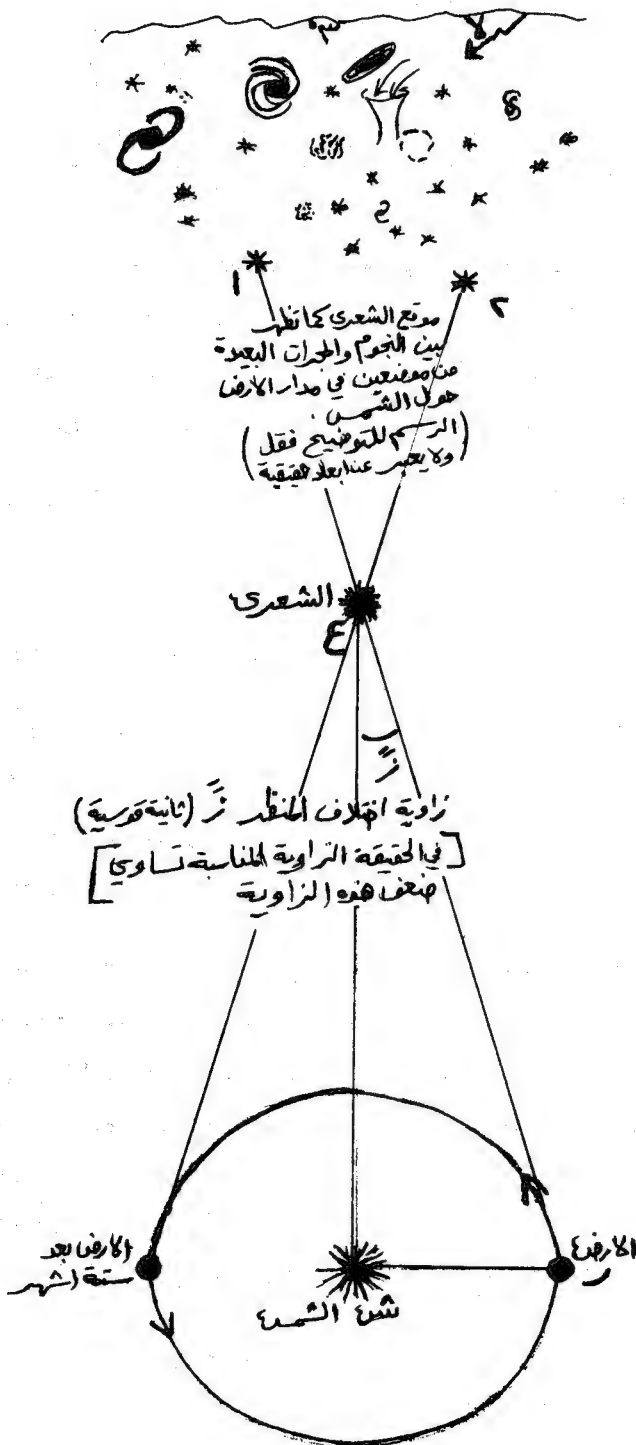 ١
٢
موقع الشعرى كما تظهر
بين النجوم والمجرات البعيدة
من موضعين في مدار الأرض
حول الشمس
(الرسم للتوضيح فقل
ولا يعبر عن ابعاد حقيقية)
الشعرى
ع
زً
زاوية اختلاف المنظر زً (ثانية قوسية)
[في الحقيقة الزاوية المقاسبة تساوي
ضعف هذه الزاوية]
الارض
ر
الارض بعد
ستة اشهر
الشمس